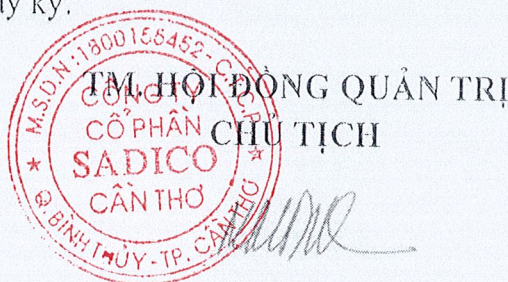 ký.
TM. HỘI ĐỒNG QUẢN TRỊ
CHỦ TỊCH
M.S.D.N:1800155452-C.T.C.P
CÔNG TY
CỔ PHẦN
SADICO
CẦN THƠ
Q.BÌNH THỦY-TP. CẦN THƠ